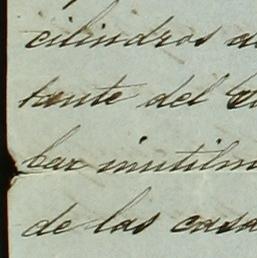 cilindros
tante del
bar inutilm
de las casa